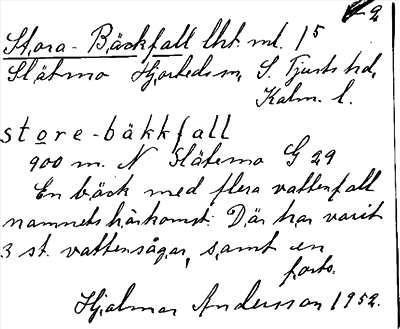 2
Stora-Bäckfall lht. ml. 15
Slätmo Hjorteds sn, S. Tjusts hd,
Kalm. l.
store-bäkkfall
900 m. N Slätemo G 29
En bäck med flera vattenfall
namnets härkomst: Där har varit
3 st. vattensågar, samt en
forts.
Hjalmar Andersson 1952.